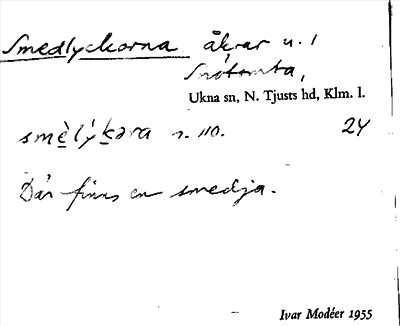 Smedlyckorna åkrar u. 1
Snötomta,
Ukna sn, N. Tjusts hd, Klm. l.
smè̱lýḵəra r. 110. 24
Där finns en smedja.
Ivar Modéer 1955